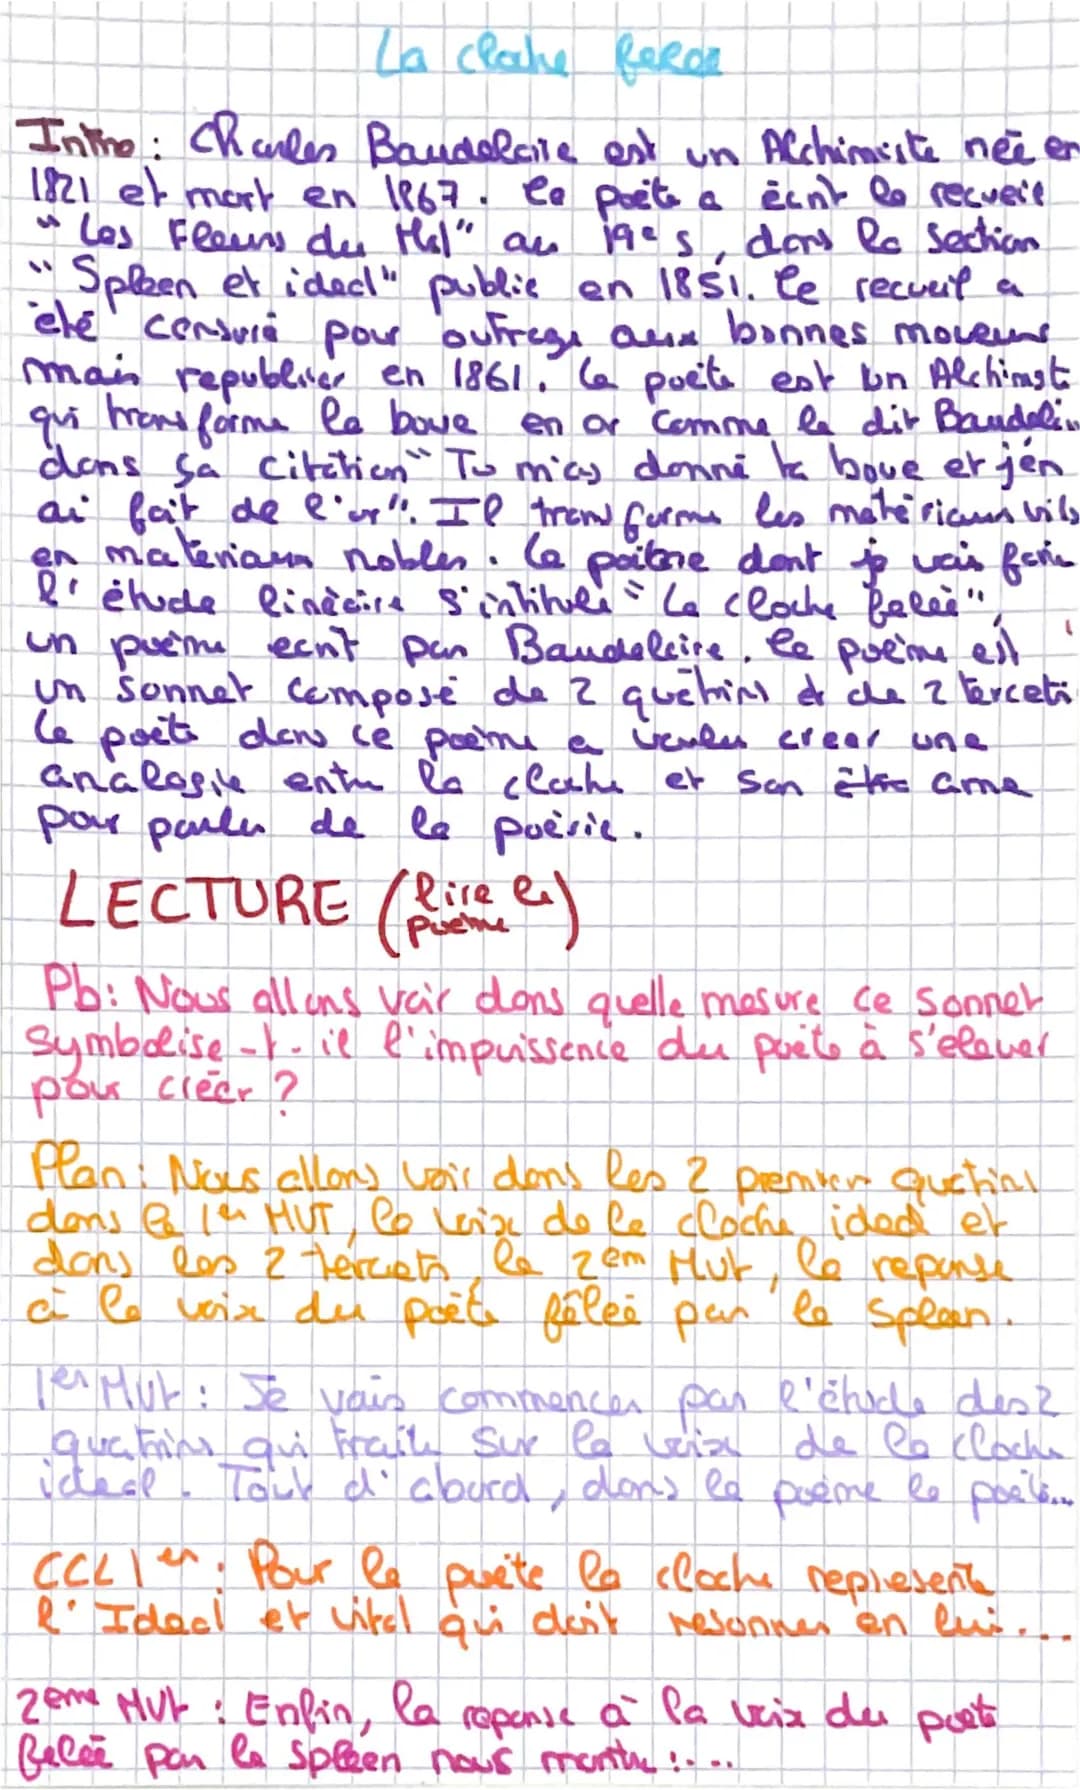 La cloche felée
Intro : Charles Baudelaire est un Alchimiste née en
1821 et mort en 1867. Le poète a écrit le recueil
"Les Fleurs du Mal" au 19e s, dans la section
"Spleen et ideal" publie en 1851. Le recueil a
été censuré pour outrage aux bonnes moeurs
mais republier en 1861. Le poète est un Alchimist
qui transforme la boue en or comme le dit Baudelai
dans sa citation "Tu m'as donné ta boue et j'en
ai fait de l'or". Il transforme les matériaux vils
en materiaux nobles. Le poème dont je vais faire
l'étude linéaire s'intitule "La cloche felée",
un poème ecrit par Baudelaire. Le poème est
un sonnet composé de 2 quatrins et de 2 tercets
Le poète dans ce poème a voulu creer une
analogie entre la cloche et son être ame
pour parler de la poésie.
LECTURE (lire le poème)
Pb : Nous allons voir dans quelle mesure ce sonnet
symbolise-t-il l'impuissence du poète à s'elever
pour créer ?
Plan : Nous allons voir dans les 2 premier quatrins
dans le 1er MVT, la voix de la cloche ideal et
dans les 2 tercets, le 2em Mvt, la reponse
à la voix du poète fêlée par le spleen.
1er Mvt : Je vais commencer par l'étude des 2
quatrins qui traite sur la voix de la cloche
ideal. Tout d'abord, dans le poème le poète...
CCL 1er : Pour le poète la cloche represente
l'Ideal et vital qui doit resonner en lui....
2ème Mvt : Enfin, la reponse à la voix du poète
felée par le spleen nous montre :....